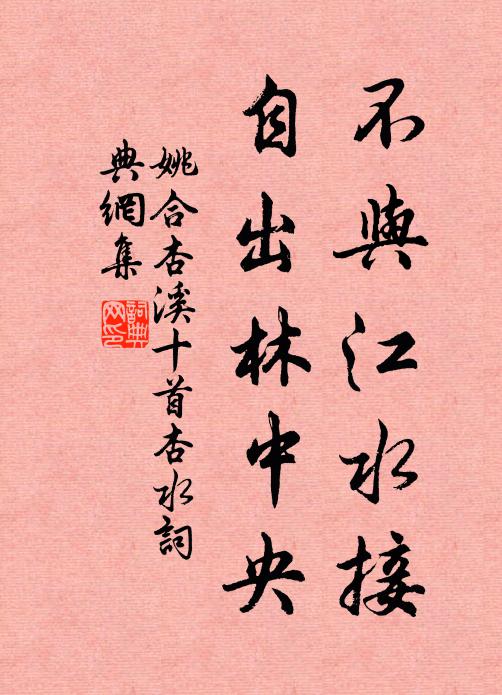 不與江水接
自出林中央
姚合杏溪十首杏水詞
典網集
詞典
网印